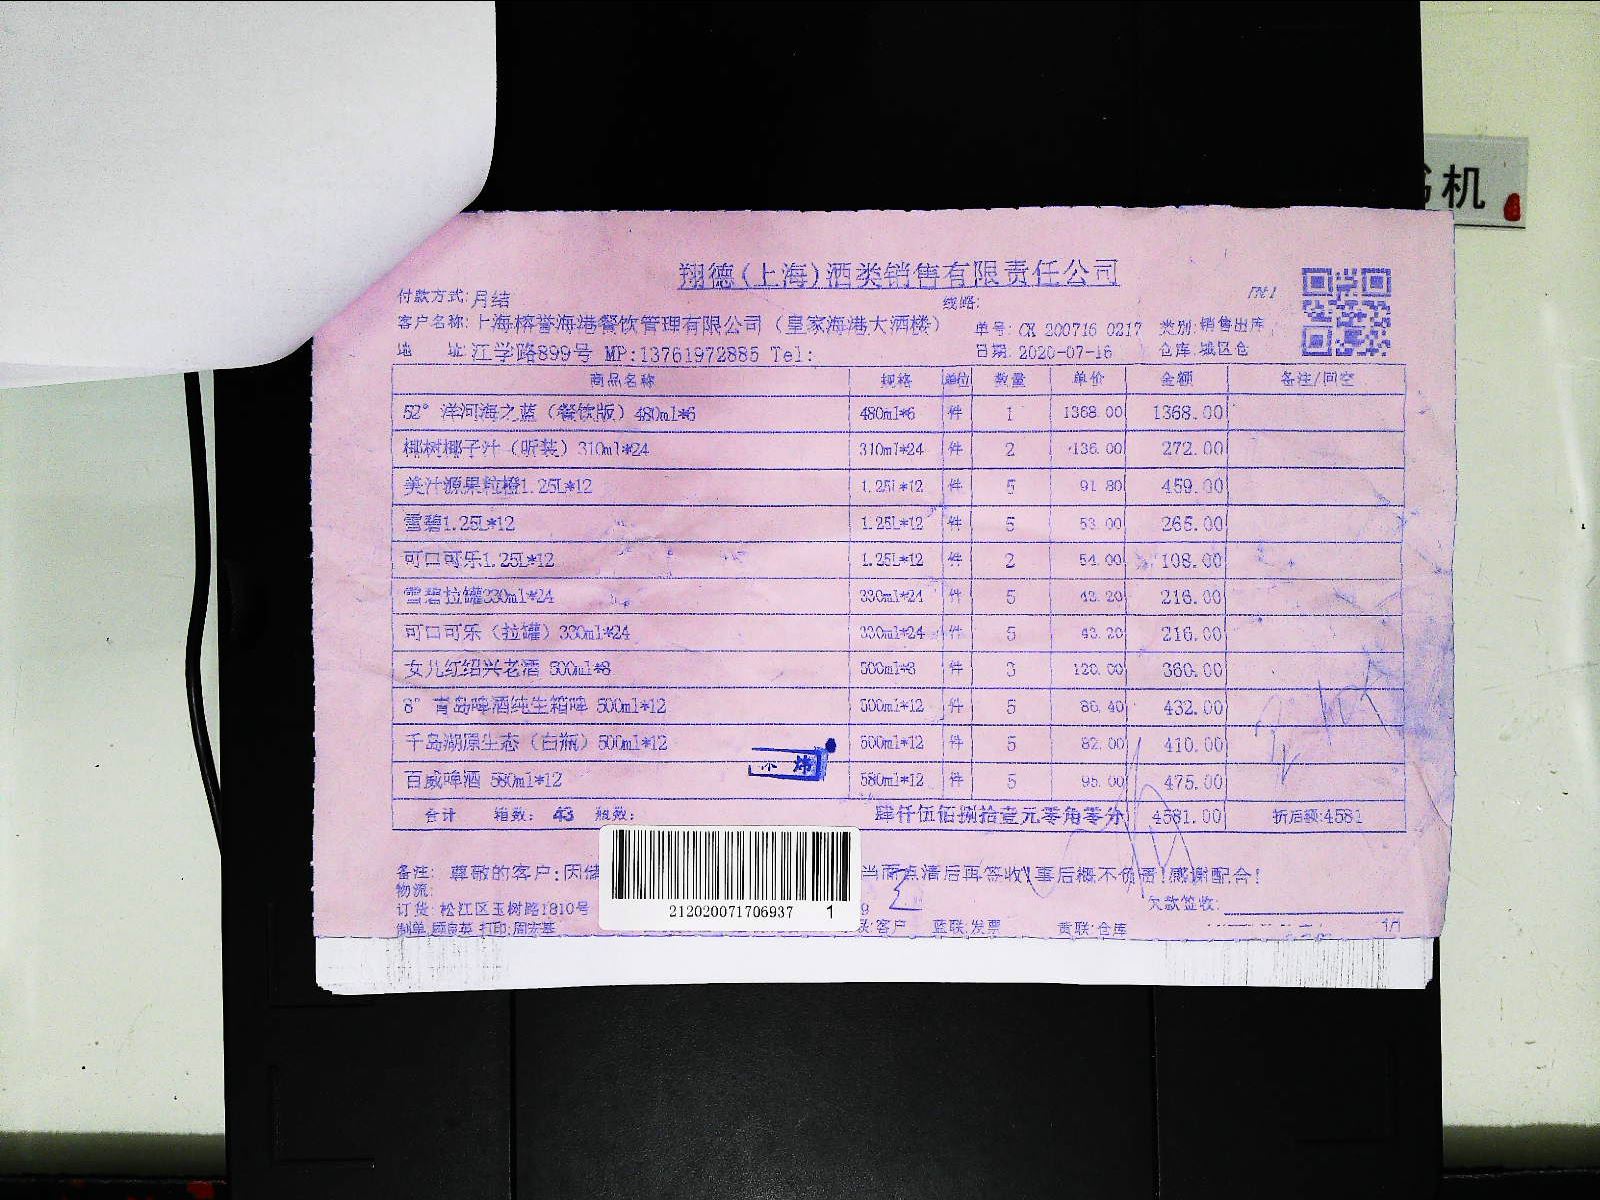 机
翔德(上海)酒类销售有限责任公司
付款方式: 月结 线路:
客户名称: 上海榕誉海港餐饮管理有限公司（皇家海港大酒楼） 单号: CK 200716 0217 类别: 销售出库
地 址: 江学路899号 MP:13761972885 Tel: 日期: 2020-07-16 仓库: 城区仓
商品名称 规格 单位 数量 单价 金额 备注/回空
52° 洋河海之蓝（餐饮版）480ml*6 480ml*6 件 1 1368.00 1368.00
椰树椰子汁（听装）310ml*24 310ml*24 件 2 136.00 272.00
美汁源果粒橙1.25L*12 1.25L*12 件 5 91.80 459.00
雪碧1.25L*12 1.25L*12 件 5 53.00 265.00
可口可乐1.25L*12 1.25L*12 件 2 54.00 108.00
雪碧拉罐330ml*24 330ml*24 件 5 43.20 216.00
可口可乐（拉罐）330ml*24 330ml*24 件 5 43.20 216.00
女儿红绍兴老酒 500ml*8 500ml*8 件 3 120.00 360.00
8° 青岛啤酒纯生箱啤 500ml*12 500ml*12 件 5 86.40 432.00
千岛湖原生态（白瓶）500ml*12 500ml*12 件 5 82.00 410.00
百威啤酒 580ml*12 580ml*12 件 5 95.00 475.00
合计 箱数: 43 瓶数: 肆仟伍佰捌拾壹元零角零分 4581.00 折后额:4581
备注: 尊敬的客户:因储 当面点清后再签收!事后概不负责!感谢配合!
物流:
订货: 松江区玉树路1810号 9 欠款签收:
制单 打印:周宏基 联:客户 蓝联:发票 黄联:仓库 1/1
212020071706937 1